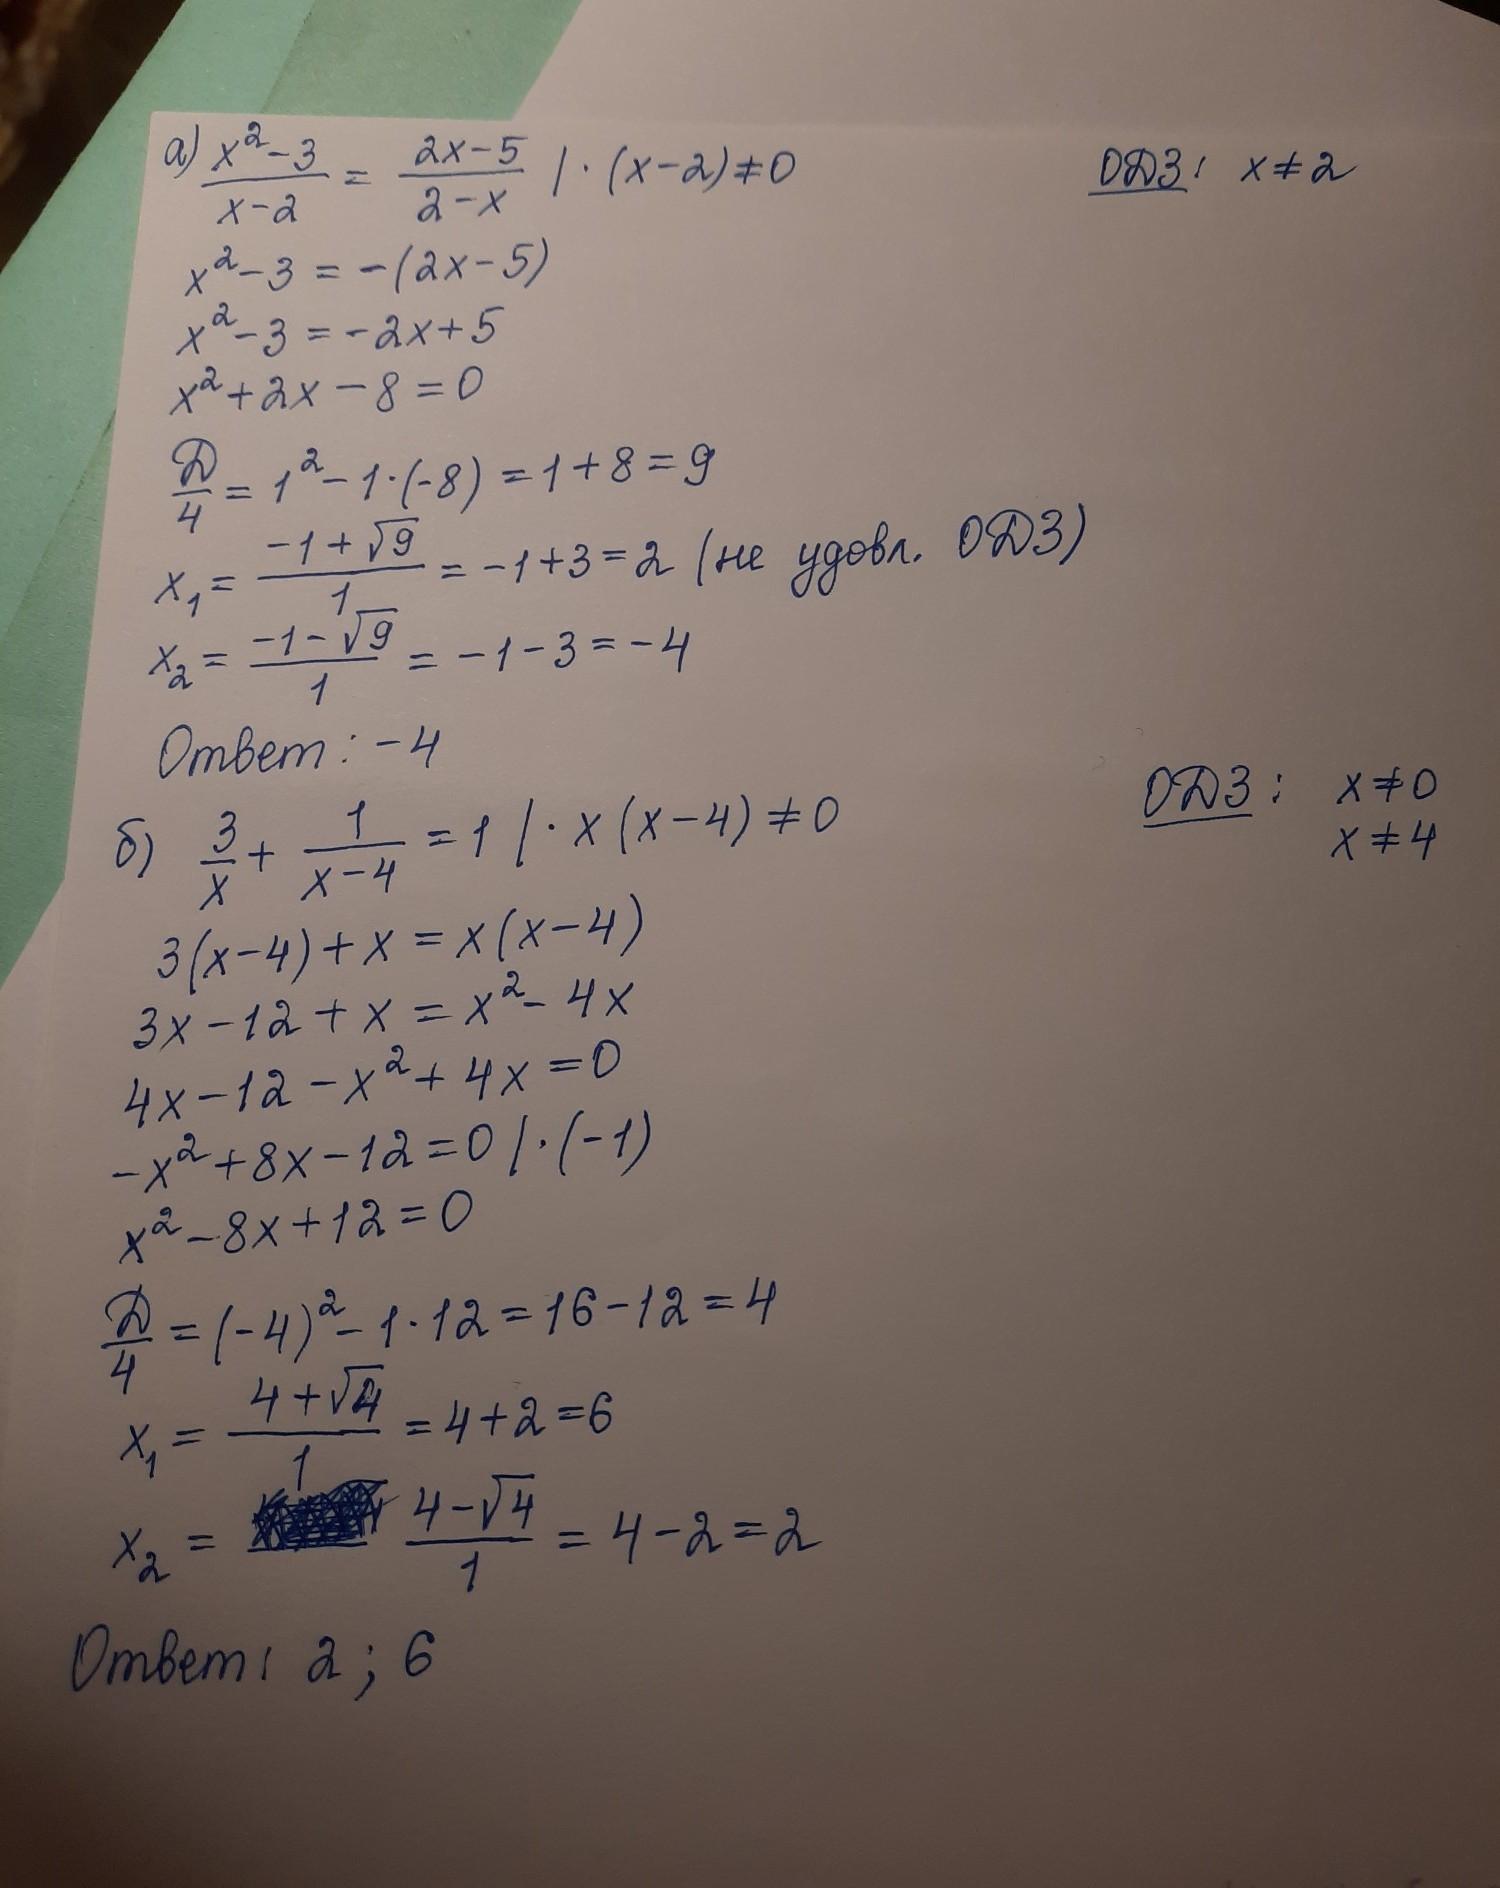 а) (x²-3)/(x-2) = (2x-5)/(2-x) |·(x-2)≠0 ОДЗ: x≠2
x²-3=-(2x-5)
x²-3=-2x+5
x²+2x-8=0
Д/4=1²-1·(-8)=1+8=9
x₁=(-1+√9)/1=-1+3=2 (не удовл. ОДЗ)
x₂=(-1-√9)/1=-1-3=-4
Ответ: -4
б) 3/x + 1/(x-4) = 1 |·x(x-4)≠0 ОДЗ: x≠0
x≠4
3(x-4)+x=x(x-4)
3x-12+x=x²-4x
4x-12-x²+4x=0
-x²+8x-12=0 |·(-1)
x²-8x+12=0
Д/4=(-4)²-1·12=16-12=4
x₁=(4+√4)/1=4+2=6
x₂=(4-√4)/1=4-2=2
Ответ: 2; 6